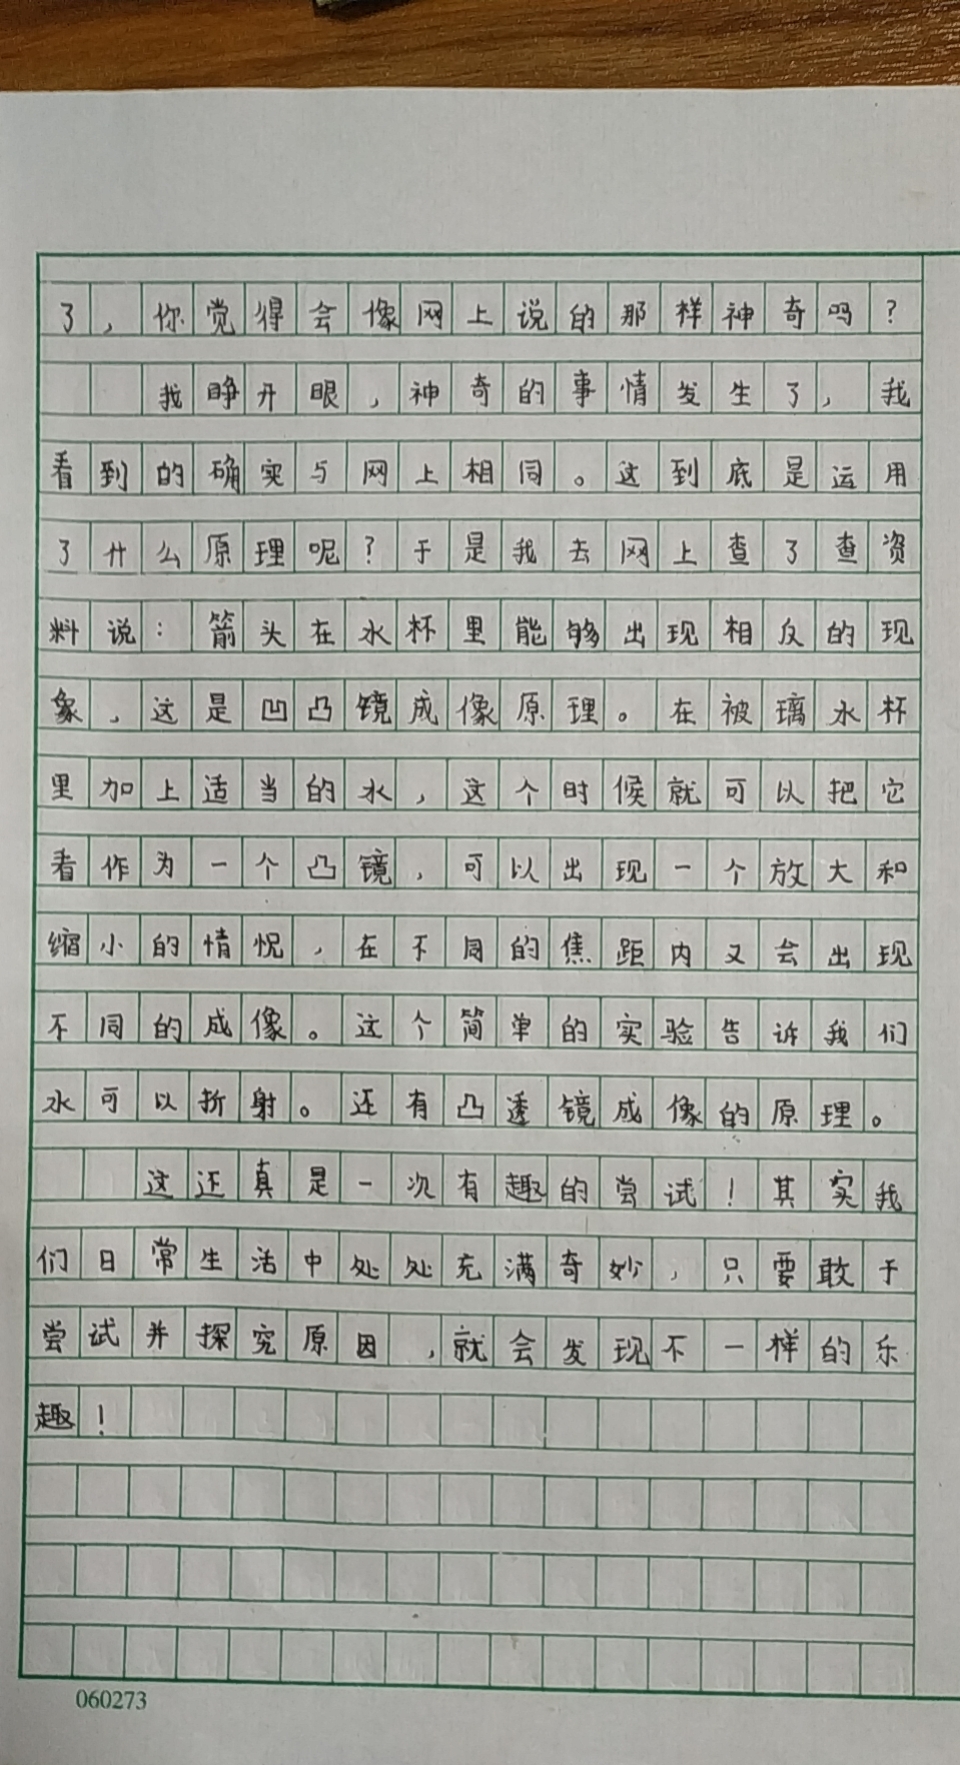 了，你觉得会像网上说的那样神奇吗？
我睁开眼，神奇的事情发生了，我
看到的确实与网上相同。这到底是运用
了什么原理呢？于是我去网上查了查资
料说：箭头在水杯里能够出现相反的现
象，这是凹凸镜成像原理。在被璃水杯
里加上适当的水，这个时候就可以把它
看作为一个凸镜，可以出现一个放大和
缩小的情况，在不同的焦距内又会出现
不同的成像。这个简单的实验告诉我们
水可以折射。还有凸透镜成像的原理。
这还真是一次有趣的尝试！其实我
们日常生活中处处充满奇妙，只要敢于
尝试并探究原因，就会发现不一样的乐
趣！
060273